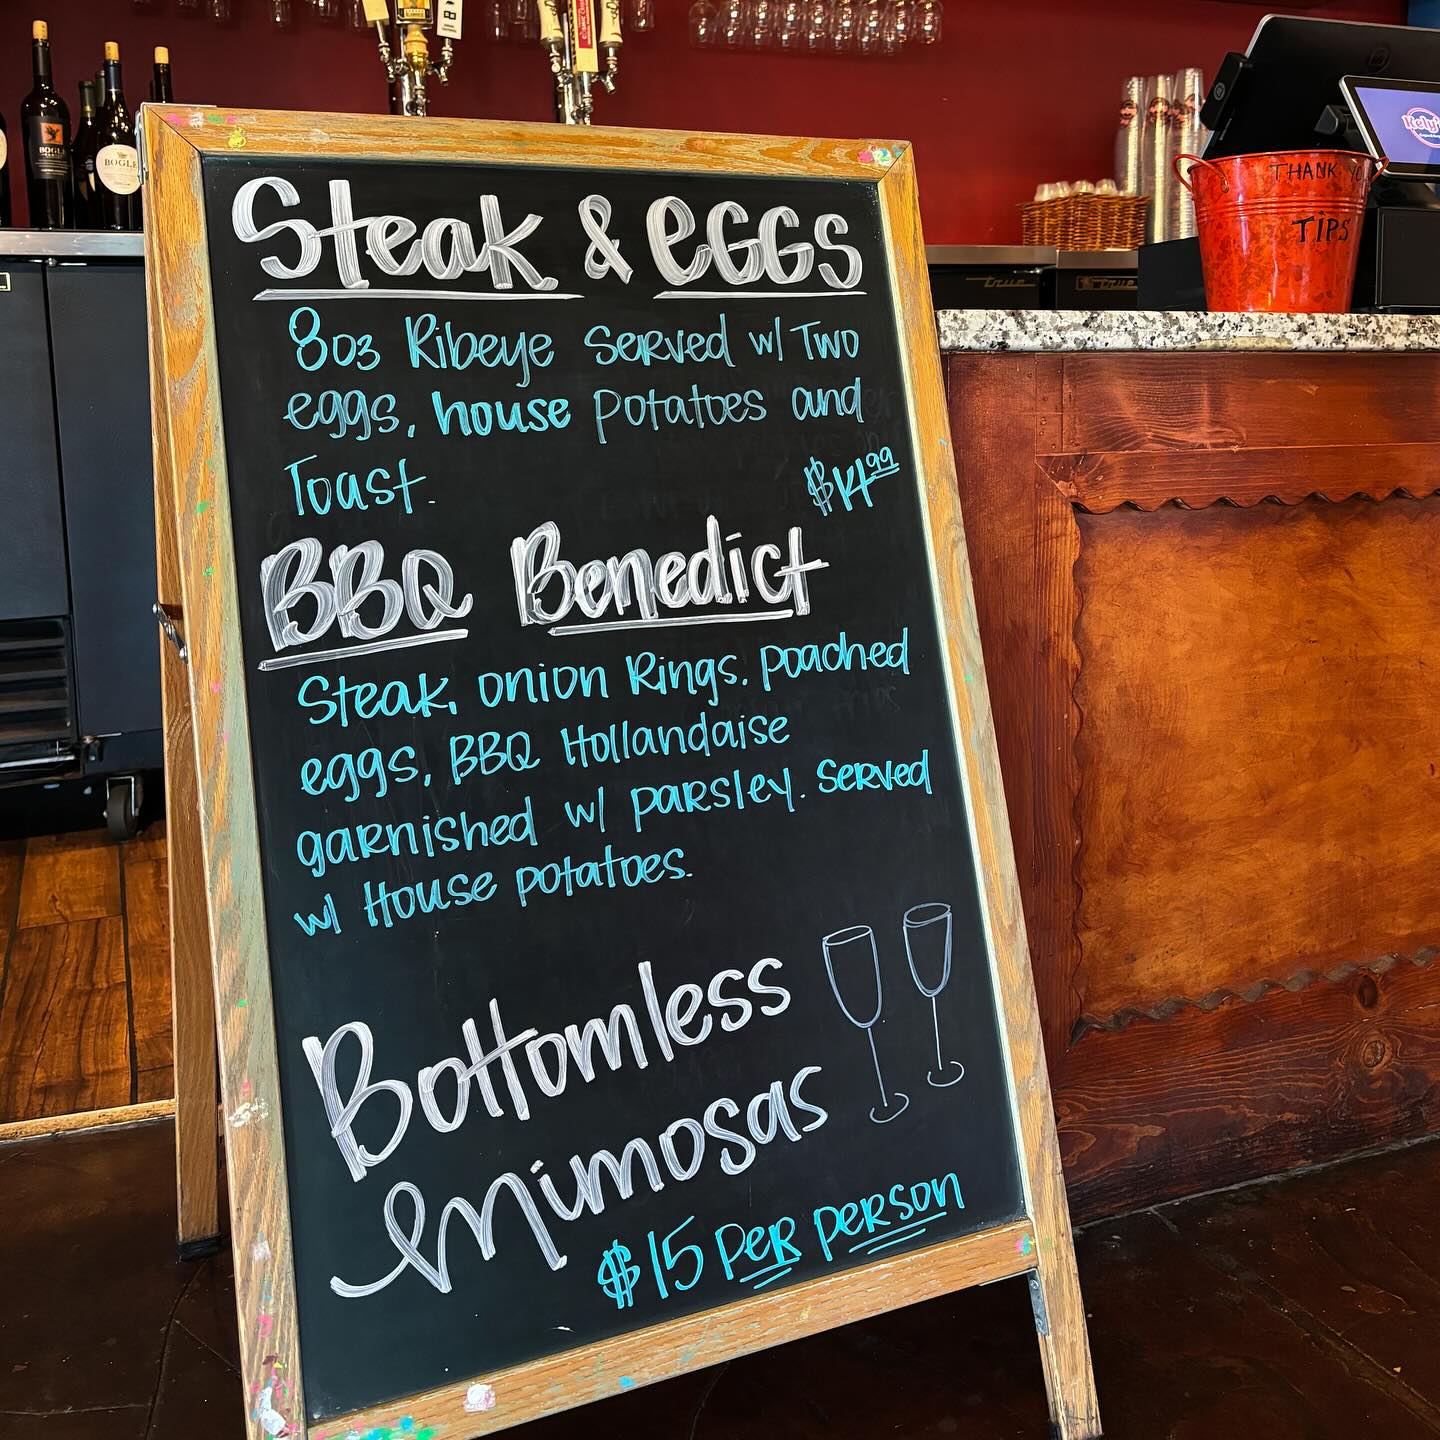 Steak & eGGS
8oz Ribeye Served w/ Two
eggs, house potatoes and
Toast.
$14.99
BBQ Benedict
Steak, onion Rings, poached
eggs, BBQ Hollandaise
garnished w/ parsley. Served
w/ House potatoes.
Bottomless
Mimosas
$15 per person
THANK YO
TIPS
BOGLE
BOGLE
true
true
Kely's